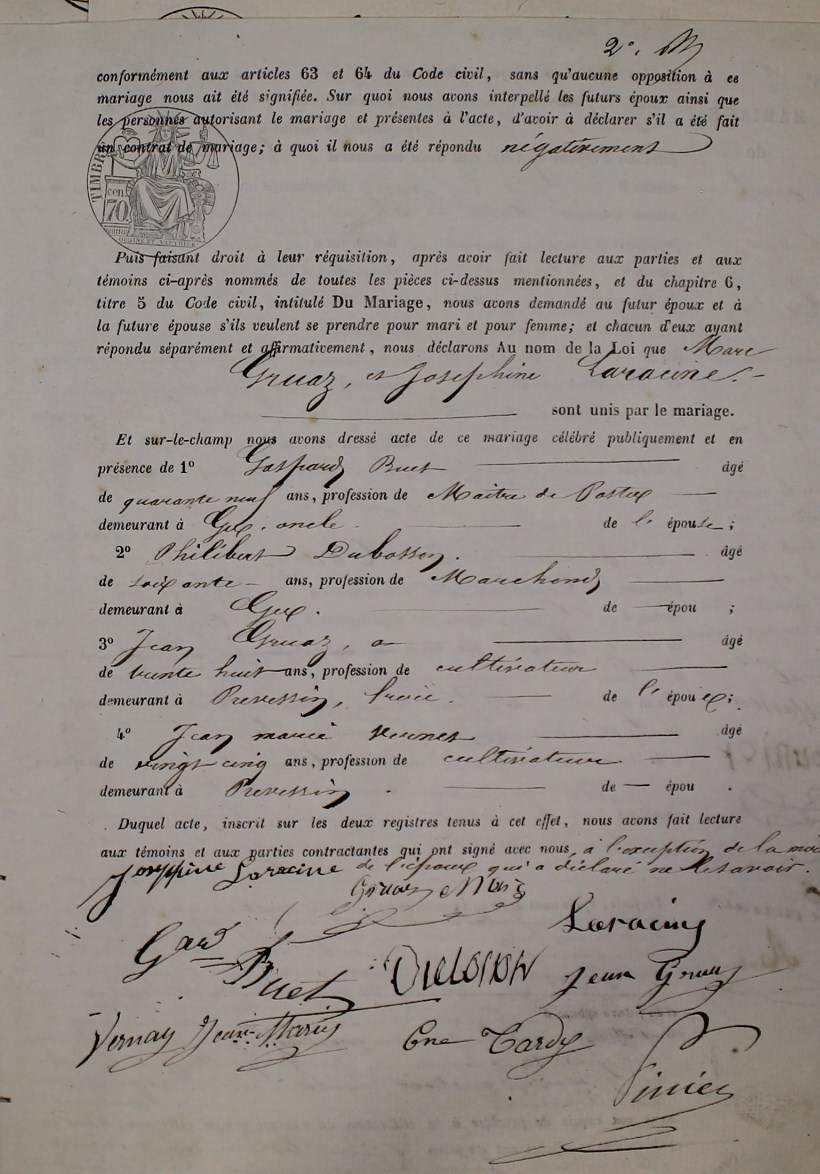 2°. M
conformément aux articles 63 et 64 du Code civil, sans qu'aucune opposition à ce
mariage nous ait été signifiée. Sur quoi nous avons interpellé les futurs époux ainsi que
les personnes autorisant le mariage et présentes à l'acte, d'avoir à déclarer s'il a été fait
un contrat de mariage; à quoi il nous a été répondu négativement
TIMBRE
cen. 70
Puis faisant droit à leur réquisition, après avoir fait lecture aux parties et aux
témoins ci-après nommés de toutes les pièces ci-dessus mentionnées, et du chapitre 6,
titre 5 du Code civil, intitulé Du Mariage, nous avons demandé au futur époux et à
la future épouse s'ils veulent se prendre pour mari et pour femme; et chacun d'eux ayant
répondu séparément et affirmativement, nous déclarons Au nom de la Loi que Marc
Gruaz, et Josephine Laracine.
sont unis par le mariage.
Et sur-le-champ nous avons dressé acte de ce mariage célébré publiquement et en
présence de 1° Gaspard Buet âgé
de quarante neuf ans, profession de Maître de Postes
demeurant à Gex. oncle de l'épouse;
2° Philibert Dubosson. âgé
de soixante ans, profession de Marchand
demeurant à Gex. de épou ;
3° Jean Gruaz, âgé
de trente huit ans, profession de cultivateur
demeurant à Prevessin, de l'époux;
4° Jean marie Vernet âgé
de vingt cinq ans, profession de cultivateur
demeurant à Prevessin. de épou .
Duquel acte, inscrit sur les deux registres tenus à cet effet, nous avons fait lecture
aux témoins et aux parties contractantes qui ont signé avec nous, à l'exception de la
de l'époux qui a déclaré ne le savoir.
Josephine Laracine
Gruaz Marc
Laracine
Gard Buet
Jean Gruaz
Vernay Jean Marie
Tardy